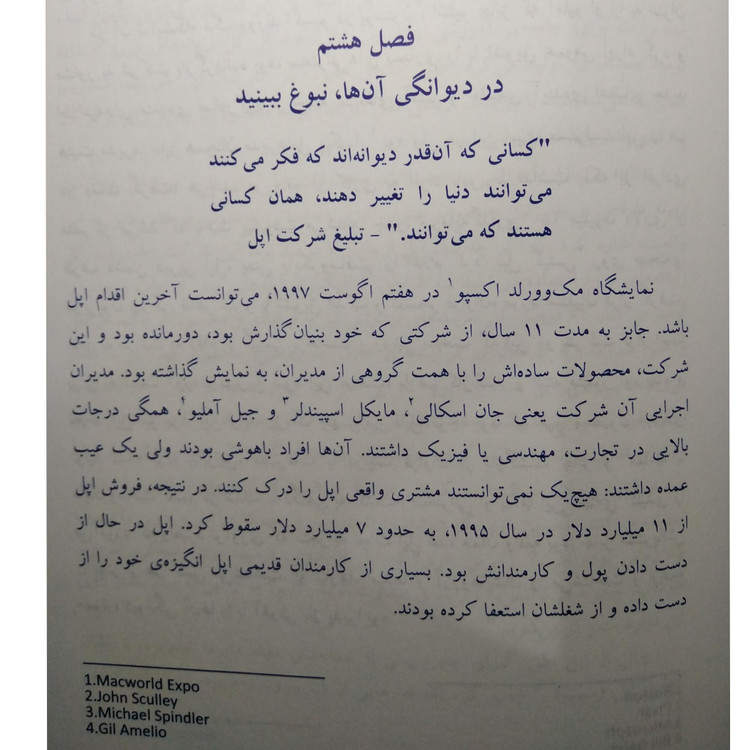 فصل هشتم
در دیوانگی آن‌ها، نبوغ ببینید
"کسانی که آن‌قدر دیوانه‌اند که فکر می‌کنند
می‌توانند دنیا را تغییر دهند، همان کسانی
هستند که می‌توانند." - تبلیغ شرکت اپل
نمایشگاه مک‌وورلد اکسپو۱ در هفتم اگوست ۱۹۹۷، می‌توانست آخرین اقدام اپل
باشد. جابز به مدت ۱۱ سال، از شرکتی که خود بنیان‌گذارش بود، دورمانده بود و این
شرکت، محصولات ساده‌اش را با همت گروهی از مدیران، به نمایش گذاشته بود. مدیران
اجرایی آن شرکت یعنی جان اسکالی۲، مایکل اسپیندلر۳ و جیل آملیو۴، همگی درجات
بالایی در تجارت، مهندسی یا فیزیک داشتند. آن‌ها افراد باهوشی بودند ولی یک عیب
عمده داشتند: هیچ‌یک نمی‌توانستند مشتری واقعی اپل را درک کنند. در نتیجه، فروش اپل
از ۱۱ میلیارد دلار در سال ۱۹۹۵، به حدود ۷ میلیارد دلار سقوط کرد. اپل در حال از
دست دادن پول و کارمندانش بود. بسیاری از کارمندان قدیمی اپل انگیزه‌ی خود را از
دست داده و از شغلشان استعفا کرده بودند.
1.Macworld Expo
2.John Sculley
3.Michael Spindler
4.Gil Amelio